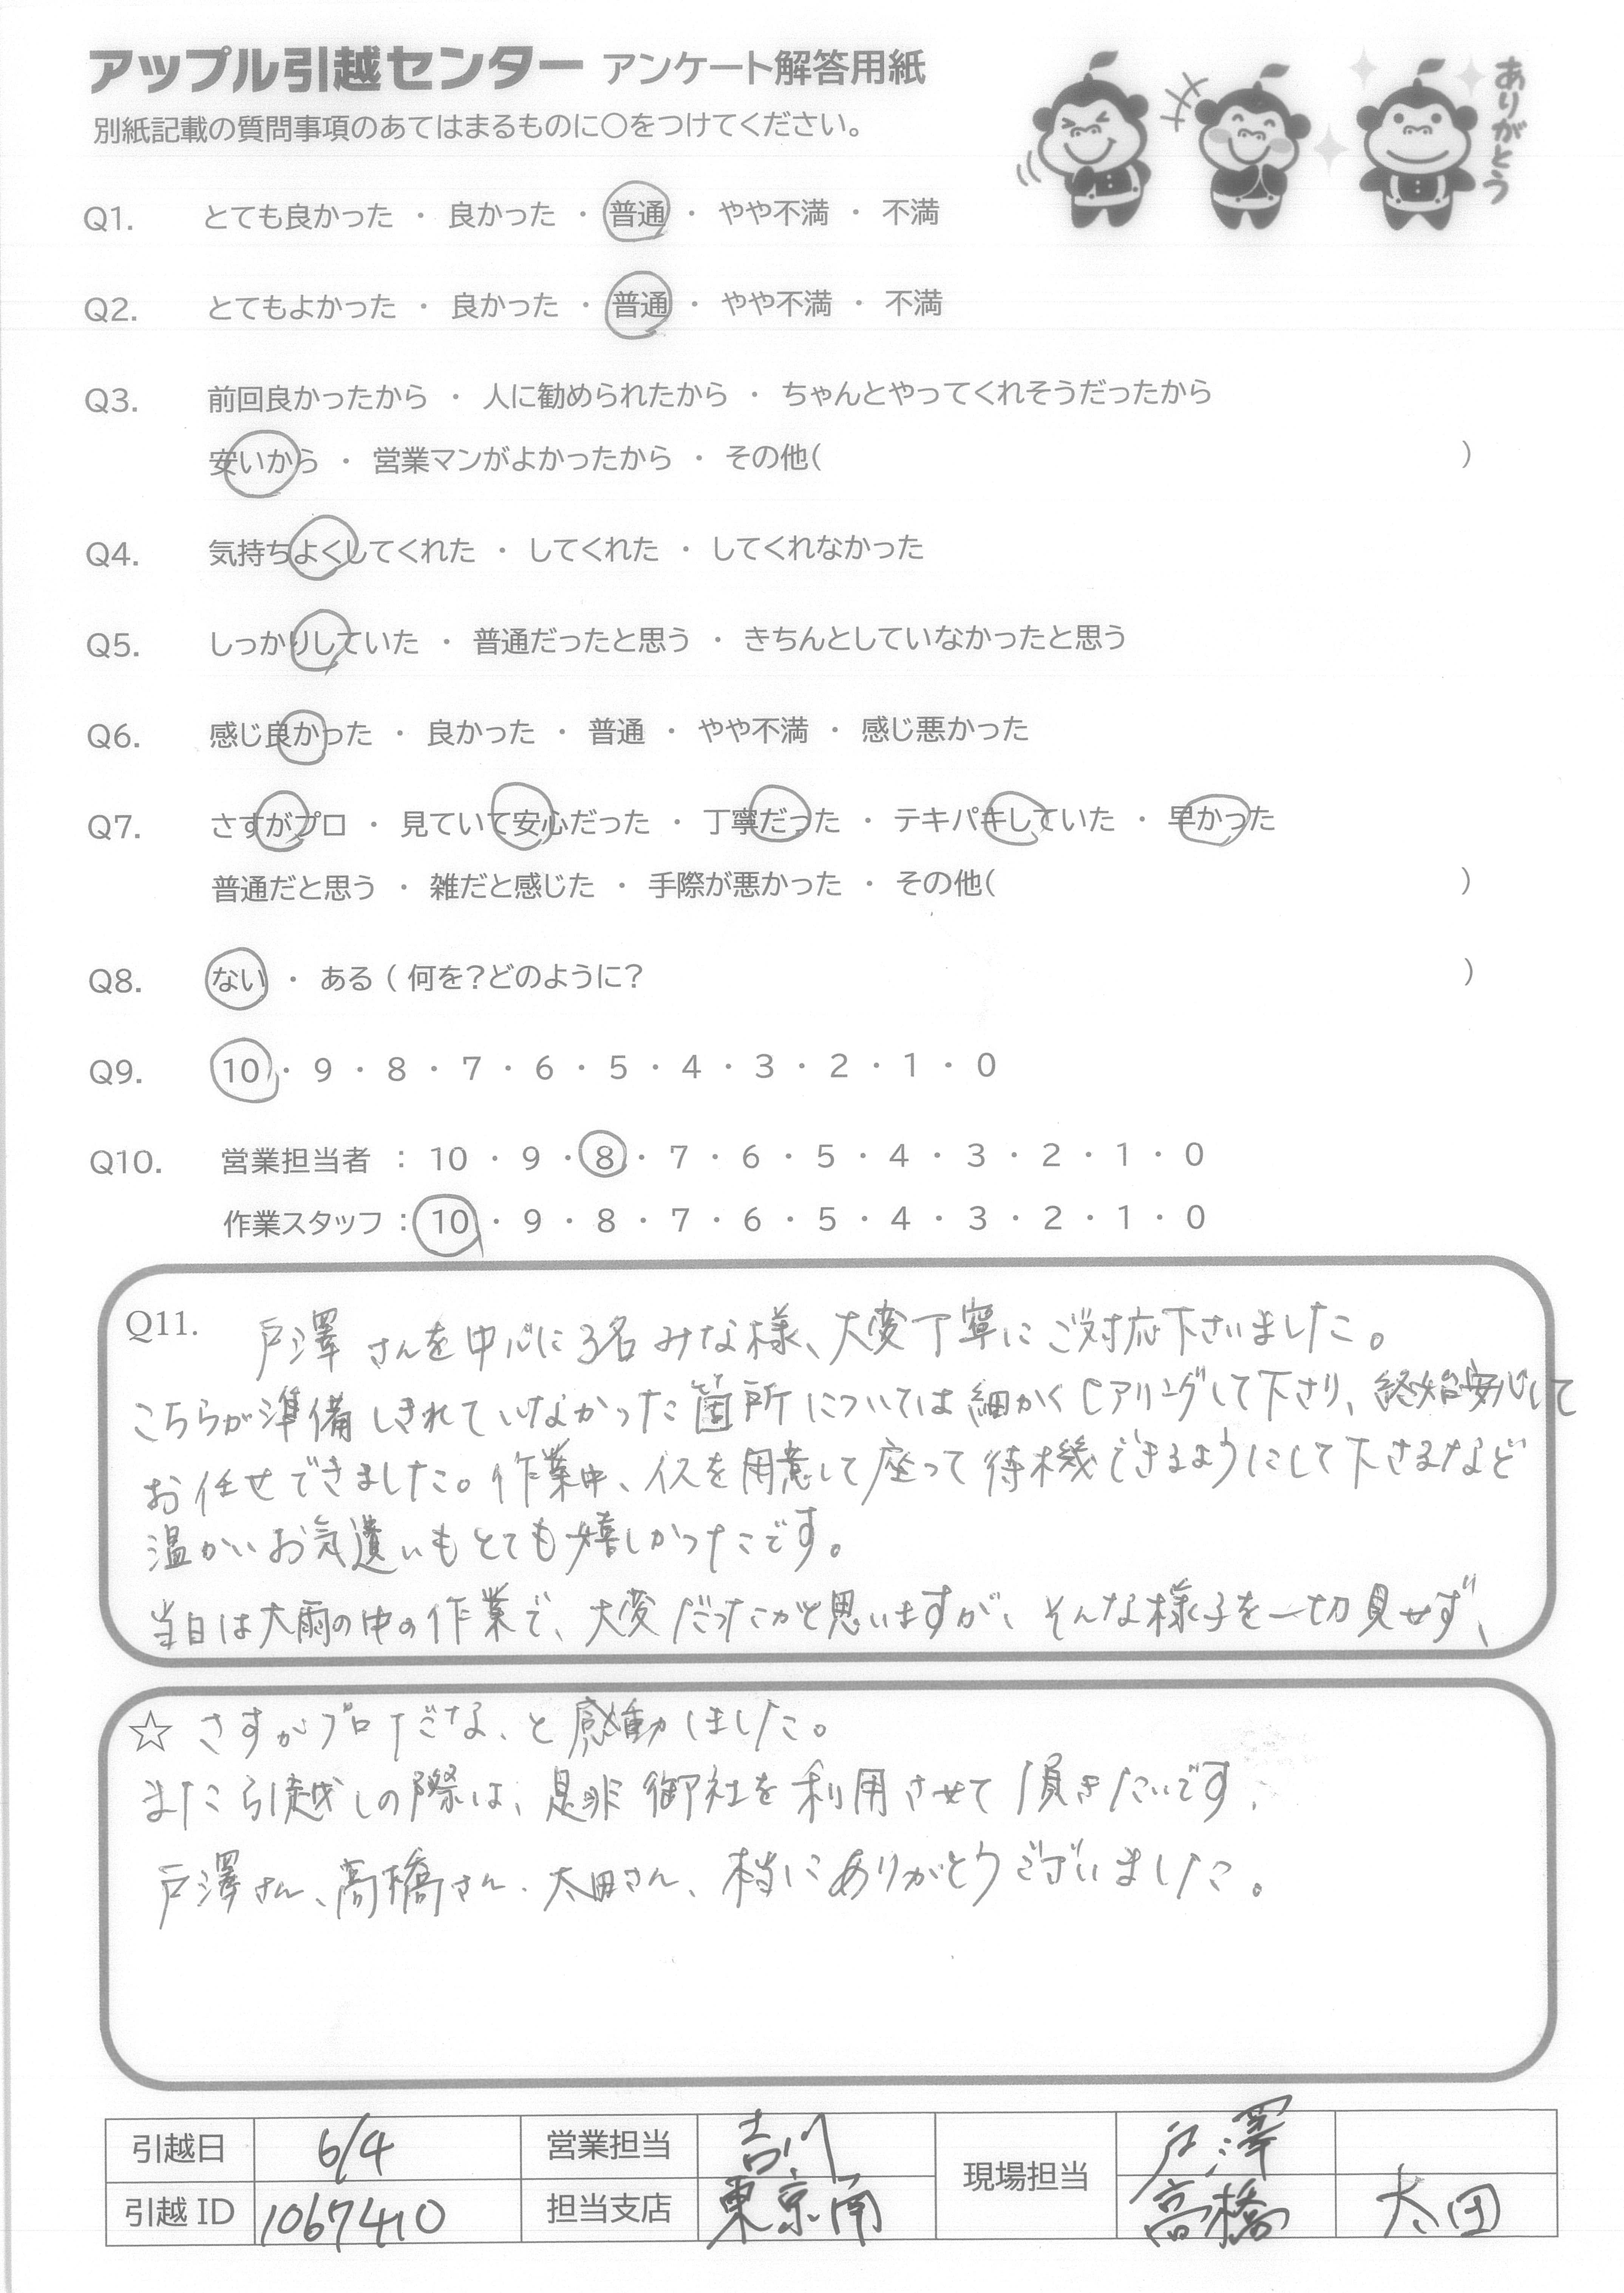 アップル引越センター アンケート解答用紙
別紙記載の質問事項のあてはまるものに○をつけてください。
ありがとう
Q1. とても良かった ・ 良かった ・ 普通 ・ やや不満 ・ 不満
Q2. とてもよかった ・ 良かった ・ 普通 ・ やや不満 ・ 不満
Q3. 前回良かったから ・ 人に勧められたから ・ ちゃんとやってくれそうだったから
安いから ・ 営業マンがよかったから ・ その他( )
Q4. 気持ちよくしてくれた ・ してくれた ・ してくれなかった
Q5. しっかりしていた ・ 普通だったと思う ・ きちんとしていなかったと思う
Q6. 感じ良かった ・ 良かった ・ 普通 ・ やや不満 ・ 感じ悪かった
Q7. さすがプロ ・ 見ていて安心だった ・ 丁寧だった ・ テキパキしていた ・ 早かった
普通だと思う ・ 雑だと感じた ・ 手際が悪かった ・ その他( )
Q8. ない ・ ある ( 何を?どのように? )
Q9. 10 ・ 9 ・ 8 ・ 7 ・ 6 ・ 5 ・ 4 ・ 3 ・ 2 ・ 1 ・ 0
Q10. 営業担当者 : 10 ・ 9 ・ 8 ・ 7 ・ 6 ・ 5 ・ 4 ・ 3 ・ 2 ・ 1 ・ 0
作業スタッフ : 10 ・ 9 ・ 8 ・ 7 ・ 6 ・ 5 ・ 4 ・ 3 ・ 2 ・ 1 ・ 0
Q11. 戸澤さんを中心に3名みな様、大変丁寧にご対応下さいました。
こちらが準備しきれていなかった箇所については細かくヒアリングして下さり、終始安心して
お任せできました。作業中、イスを用意して座って待機できるようにして下さるなど
温かいお気遣いもとても嬉しかったです。
当日は大雨の中の作業で、大変だったかと思いますが、そんな様子を一切見せず、
☆ さすがプロだな、と感動しました。
また引越しの際は、是非御社を利用させて頂きたいです。
戸澤さん、高橋さん、太田さん、本当にありがとうございました。
引越日 6/4 営業担当 吉川 現場担当 戸澤
引越ID 1067410 担当支店 東京南 高橋 太田